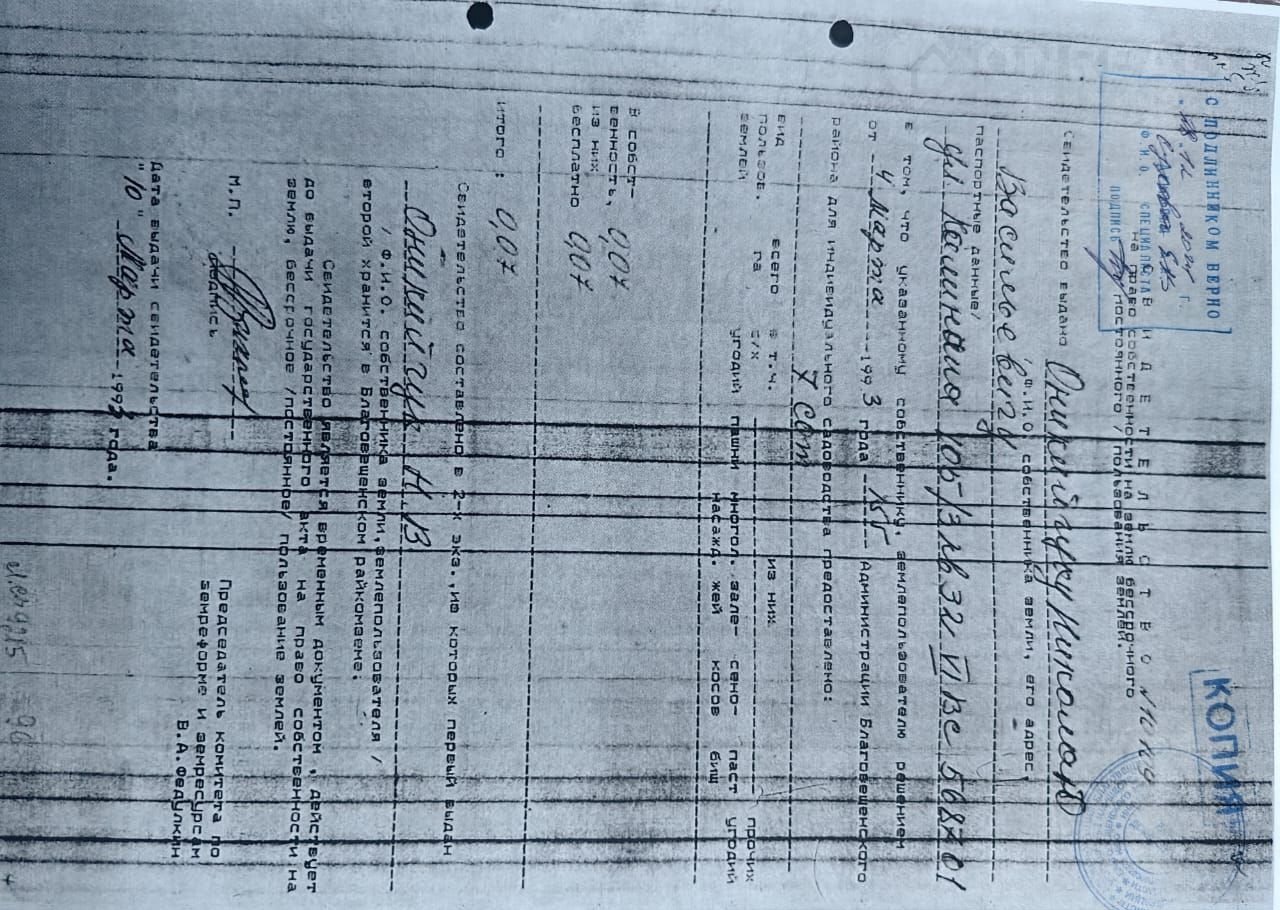 КОПИЯ
С ПОДЛИННИКОМ ВЕРНО
Ф.И.О. СПЕЦИАЛИСТА
ПОДПИСЬ
С В И Д Е Т Е Л Ь С Т В О N 1019
на право собственности на землю бессрочного
/постоянного/ пользования землей.
Свидетельство выдано Оникийчуку Николаю
/Ф.И.О. собственника земли, его адрес,
Васильевичу
паспортные данные/
ул Калинина 105/3 кв 32 VI ВС 568701
в том, что указанному собственнику, землепользователю решением
от 4 марта 1993 года 155 Администрации Благовещенского
района для индивидуального садоводства предоставлено:
7 сот
вид всего в т.ч. из них прочих
пользов. га с/х
земель угодий пашни многол. зале- сено- паст угодий
насажд. жей косов бищ
В собст-
венность, 0,07
из них
бесплатно 0,07
итого : 0,07
Свидетельство составлено в 2-х экз.,из которых первый выдан
Оникийчук Н.В.
/ Ф.И.О. собственника земли,землепользователя /
второй хранится в Благовещенском райкомземе.
Свидетельство является временным документом , действует
до выдачи государственного акта на право собственности на
землю, бессрочное /постоянное/ пользование землей.
Председатель комитета по
земреформе и земресурсам
В.А.Федулкин
М.П.
подпись
Дата выдачи свидетельства
"10" марта 1993 года.